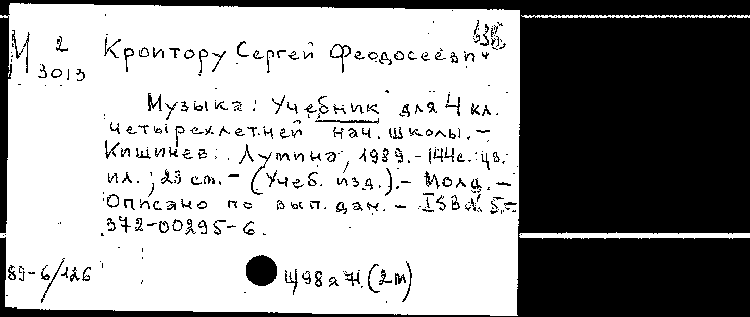 М 2
3013
635
Кроитору Сергей Феодосеевич
Музыка: Учебник для 4 кл.
четырехлетней нач. школы. –
Кишинев: Лумина, 1989. – 144с.: цв.
ил.; 23 см. – (Учеб. изд.). – Молд. –
Описано по вып. дан. – ISBN 5–
372–00295–6.
89–6/126
Щ98я71 (2m)